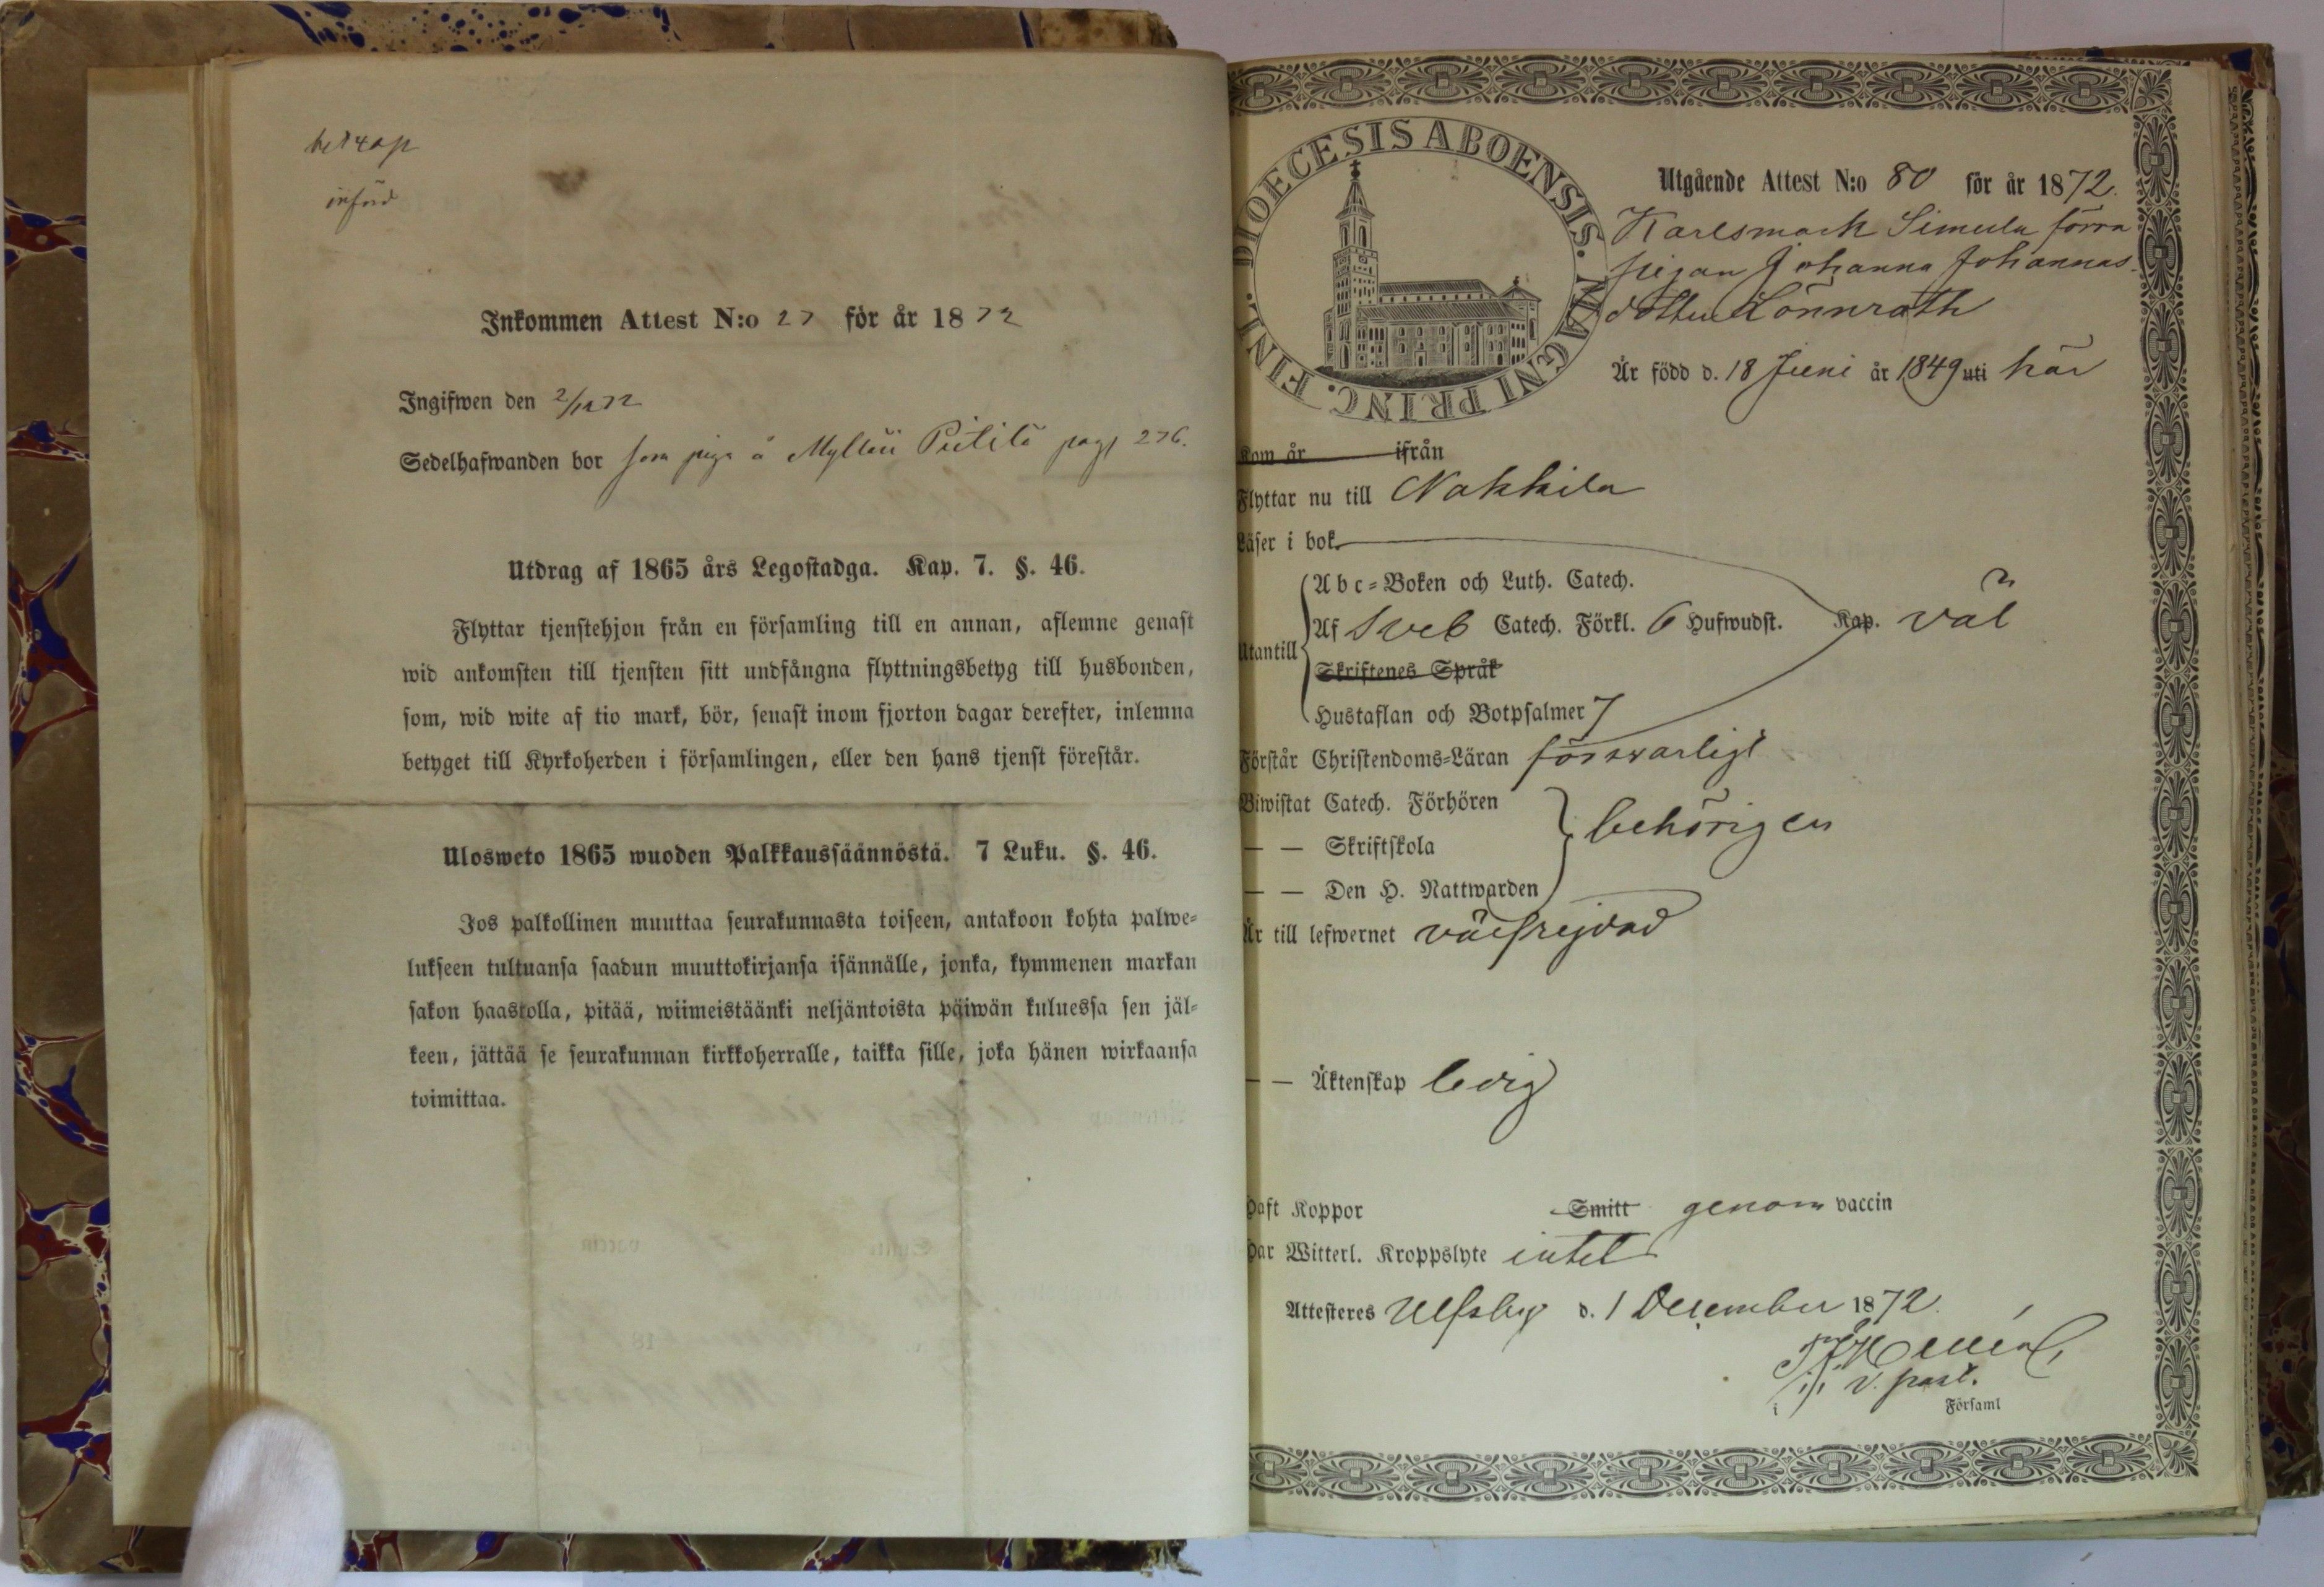 införd
Inkommen Attest N:o 27 för år 1872
Ingifwen den 2/12 72
Sedelhafwanden bor som piga å Pietilä pag 276.
Utdrag af 1865 års Legostadga. Kap. 7. §. 46.
Flyttar tjenstehjon från en församling till en annan, aflemne genast
wid ankomsten till tjensten sitt undfångna flyttningsbetyg till husbonden,
som, wid wite af tio mark, bör, senast inom fjorton dagar derefter, inlemna
betyget till Kyrkoherden i församlingen, eller den hans tjenst förestår.
Ulosweto 1865 wuoden Palkkaussäännöstä. 7 Luku. §. 46.
Jos palkollinen muuttaa seurakunnasta toiseen, antakoon kohta palwe-
lukseen tultuansa saadun muuttokirjansa isännälle, jonka, kymmenen markan
sakon haastolla, pitää, wiimeistäänki neljäntoista päiwän kuluessa sen jäl-
keen, jättää se seurakunnan kirkkoherralle, taikka sille, joka hänen wirkaansa
toimittaa.
DIOECESIS ABOENSIS. MAGNI PRINC. FINL.
Utgående Attest N:o 80 för år 1872.
Karlsmark Simula förra
pigan Johanna Johannas-
dotter Lönnroth
Är född d. 18 Juni år 1849 uti här
Kom år ifrån
Flyttar nu till Nakkila
Läser i bok
Abc-Boken och Luth. Catech.
Utantill Af Sveb Catech. Förkl. 6 Hufwudst. Kap. väl
Skriftenes Språk
Hustaflan och Botpsalmer 7
Förstår Christendoms-Läran försvarligt
Biwistat Catech. Förhören
— — Skriftskola behörigen
— — Den H. Nattwarden
Är till lefwernet välfrejdad
— — Äktenskap ledig
Haft Koppor Smitt genom vaccin
Har Witterl. Kroppslyte intet
Attesteres Ulfsby d. 1 December 1872.
v. past.
i Församl